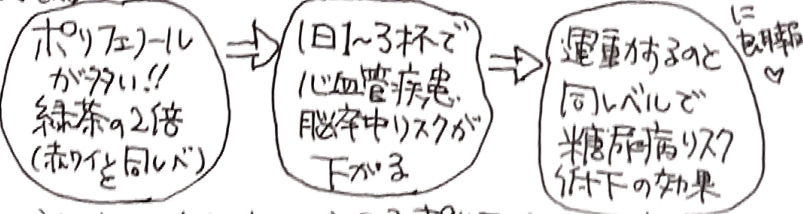 ポリフェノール
が多い!!
緑茶の2倍
(赤ワインと同レベ)
1日1~3杯で
心血管疾患、
脳卒中リスクが
下がる
運動するのと
同レベルで
糖尿病リスク
低下の効果
に
♡